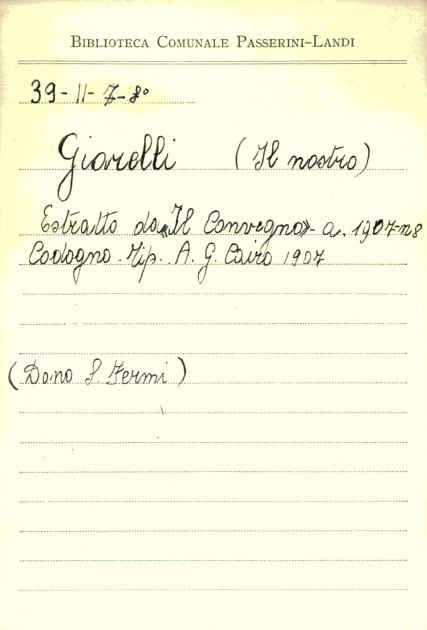 BIBLIOTECA COMUNALE PASSERINI-LANDI
39-II-7-8°
Giarelli (Il nostro)
Estratto da "Il Convegno" - a. 1907-n 8
Codogno. Tip. A. G. Cairo 1907
(Dono S. Fermi)